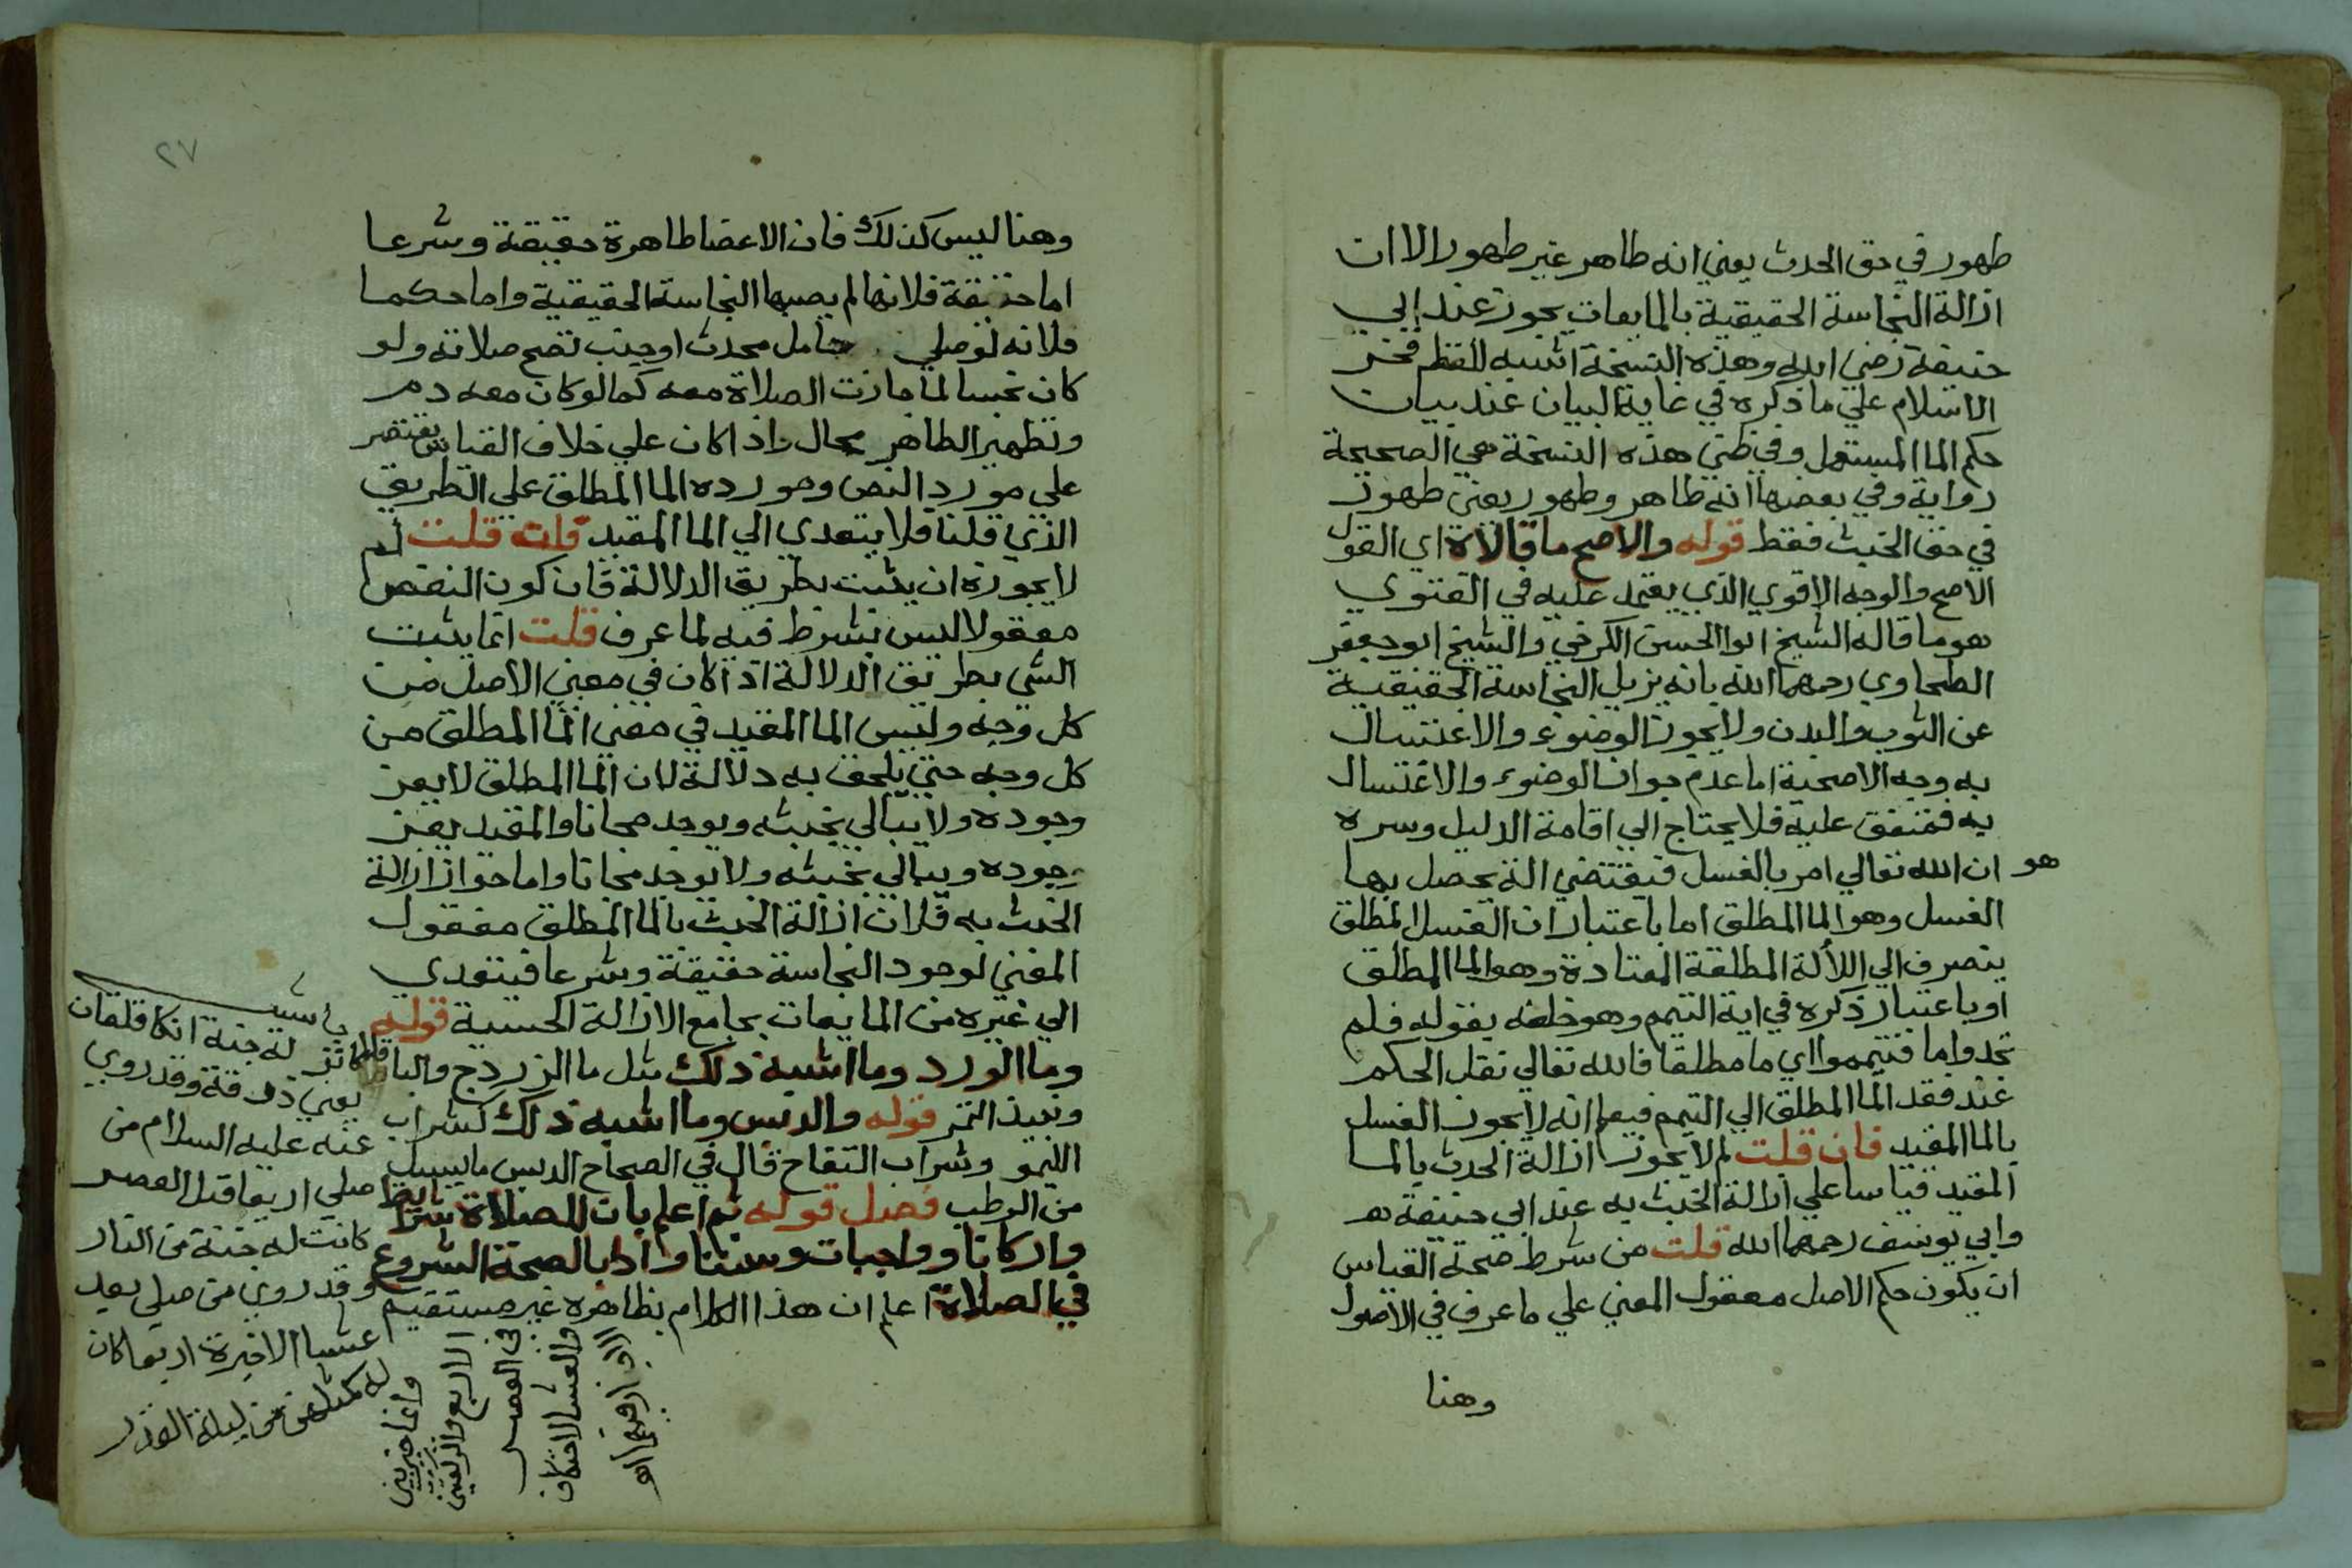 طهور في حق الحدث يعني انه طاهر غير طهور الا ان
ازالة النجاسة الحقيقية بالمايعات يجوز عند ابي
حنيفة رضي الله وهذه النسخة اشبه للفظ فخر
الاسلام علي ما ذكره في غاية البيان عند بيان
حكم الما المستعمل وفي ظني هذه النسخة هي الصحيحة
رواية وفي بعضها انه طاهر وطهور يعني طهور
في حق الخبث فقط قوله والاصح ما قالاه اي القول
الاصح والوجه الاقوي الذي يعتمد عليه في الفتوي
هو ما قاله الشيخ ابوا الحسن الكرخي والشيخ ابو جعفر
الطحاوي رحمهما الله بانه يزيل النجاسة الحقيقية
عن الثوب والبدن ولا يجوز الوضوء والاغتسال
به وجه الاصحية اما عدم جواز الوضوء والاغتسال
به فمتفق عليه فلا يحتاج الي اقامة الدليل وسره
هو ان الله تعالي امر بالغسل فيقتضي الة يحصل بها
الغسل وهو الما المطلق اما باعتبار ان الغسل المطلق
ينصرف الي اللألة المطلقة المعتادة وهو الما المطلق
او باعتبار ذكره في اية التيمم وهو خلفه بقوله فلم
تجدوا ما فتيمموا اي ما مطلقا فالله تعالي نقل الحكم
عند فقد الما المطلق الي التيمم فيها انه لا يجوز الغسل
بالما المقيد فان قلت لم لا يجوز ازالة الحدث بالما
المقيد قياسا علي ازالة الخبث به عند ابي حنيفة
وابي يوسف رحمهما الله قلت من شرط صحة القياس
ان يكون حكم الاصل معقول المعني علي ما عرف في الاصول
وهنا
٢٧
وهنا ليس كذلك فان الاعضا طاهرة حقيقة وشرعا
اما حقيقة فلانها لم يصبها النجاسة الحقيقية واما حكما
فلانه لو صلي حامل محدث او جنب تصح صلاته ولو
كان نجسا لما جازت الصلاة معه كما لو كان معه دم
وتطهير الطاهر محال واذا كان علي خلاف القياس يقتصر
علي مورد النص ومورده الما المطلق علي الطريق
الذي قلنا فلا يتعدي الي الما المقيد فان قلت لم
لا يجوزه ان يثبت بطريق الدلالة فان كون النقص
معقولا ليس بشرط فيه لما عرف قلت انما يثبت
الشي بطريق الدلالة اذا كان في معني الاصل من
كل وجه وليس الما المقيد في معني الما المطلق من
كل وجه حتي يلحق به دلالة لان الما المطلق لا يعز
وجوده ولا يبالي بخبثه ويوجد مجانا والمقيد يعز
وجوده ويبالي بخبثه ولا يوجد مجانا واما جواز ازالة
الخبث به فلان ازالة الخبث بالما المطلق معقول
المعني لوجود النجاسة حقيقة وشرعا فيتعدي
الي غيره من المايعات بجامع الازالة الحسية قوله
وما الورد وما اشبه ذلك مثل ما الزردج والباقلا
ونبيذ التمر قوله والدبس وما اشبه ذلك كشراب
الليمو وشراب التفاح قال في الصحاح الدبس ما يسيل
من الرطب فصل قوله ثم اعلم بان للصلاة شرايط
واركانا وواجبات وسننا وادابا لصحة الشروع
في الصلاة اعلم ان هذا الكلام بظاهره غير مستقيم
له جنة
يعني وقد روي
عنه عليه السلام من
صلي اربعا قبل العصر
كانت له جنة من النار
وقد روي من صلي بعد
عشا الاخيرة اربعا كان
له كمثلهن من ليلة القدر
وانما خير بين
الاربع والركعتين
في العصر
والعشا